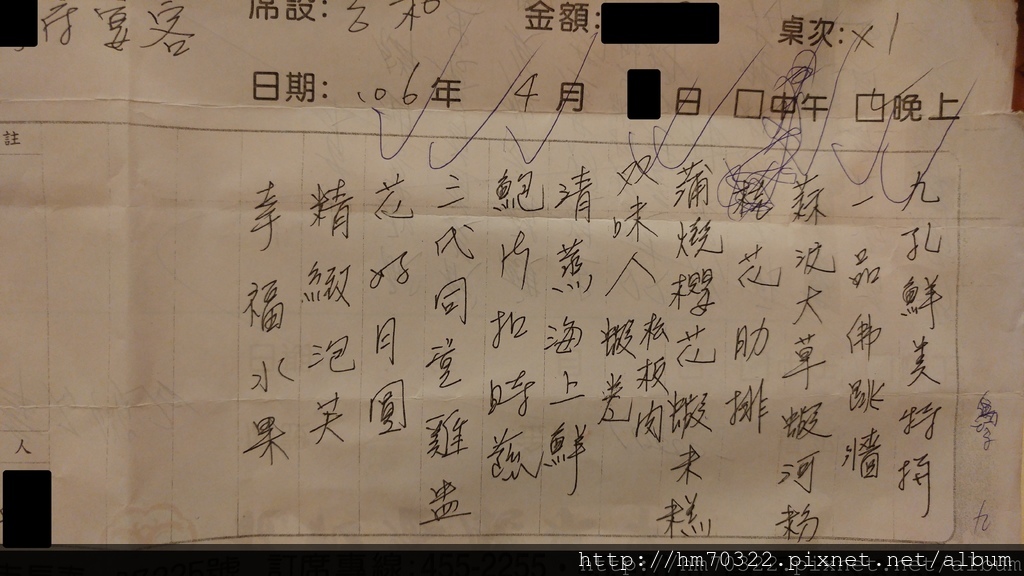 府宴客
席設:
金額:
桌次:x1
日期:106年 4月 日 □中午 □晚上
註
九孔鮮美特拼
一品佛跳牆
蒜汶大草蝦河粉
花肋排
蒲燒櫻花蝦米糕
双味人 松板肉 蝦卷
清蒸海上鮮
鮑片扣時蔬
三代同堂雞盅
花好月圓
精緻泡芙
幸福水果
人
訂席專線:455-2255
http://hm70322.pixnet.net/album